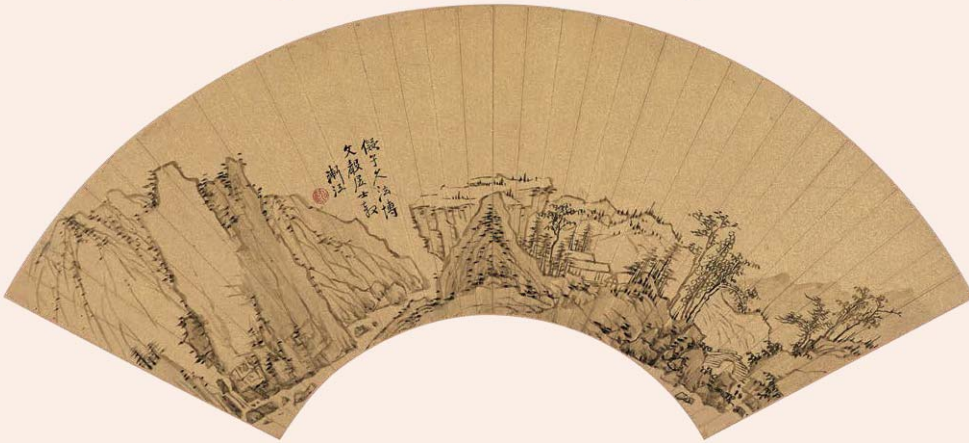 倣子久法博
文居士教
漸江